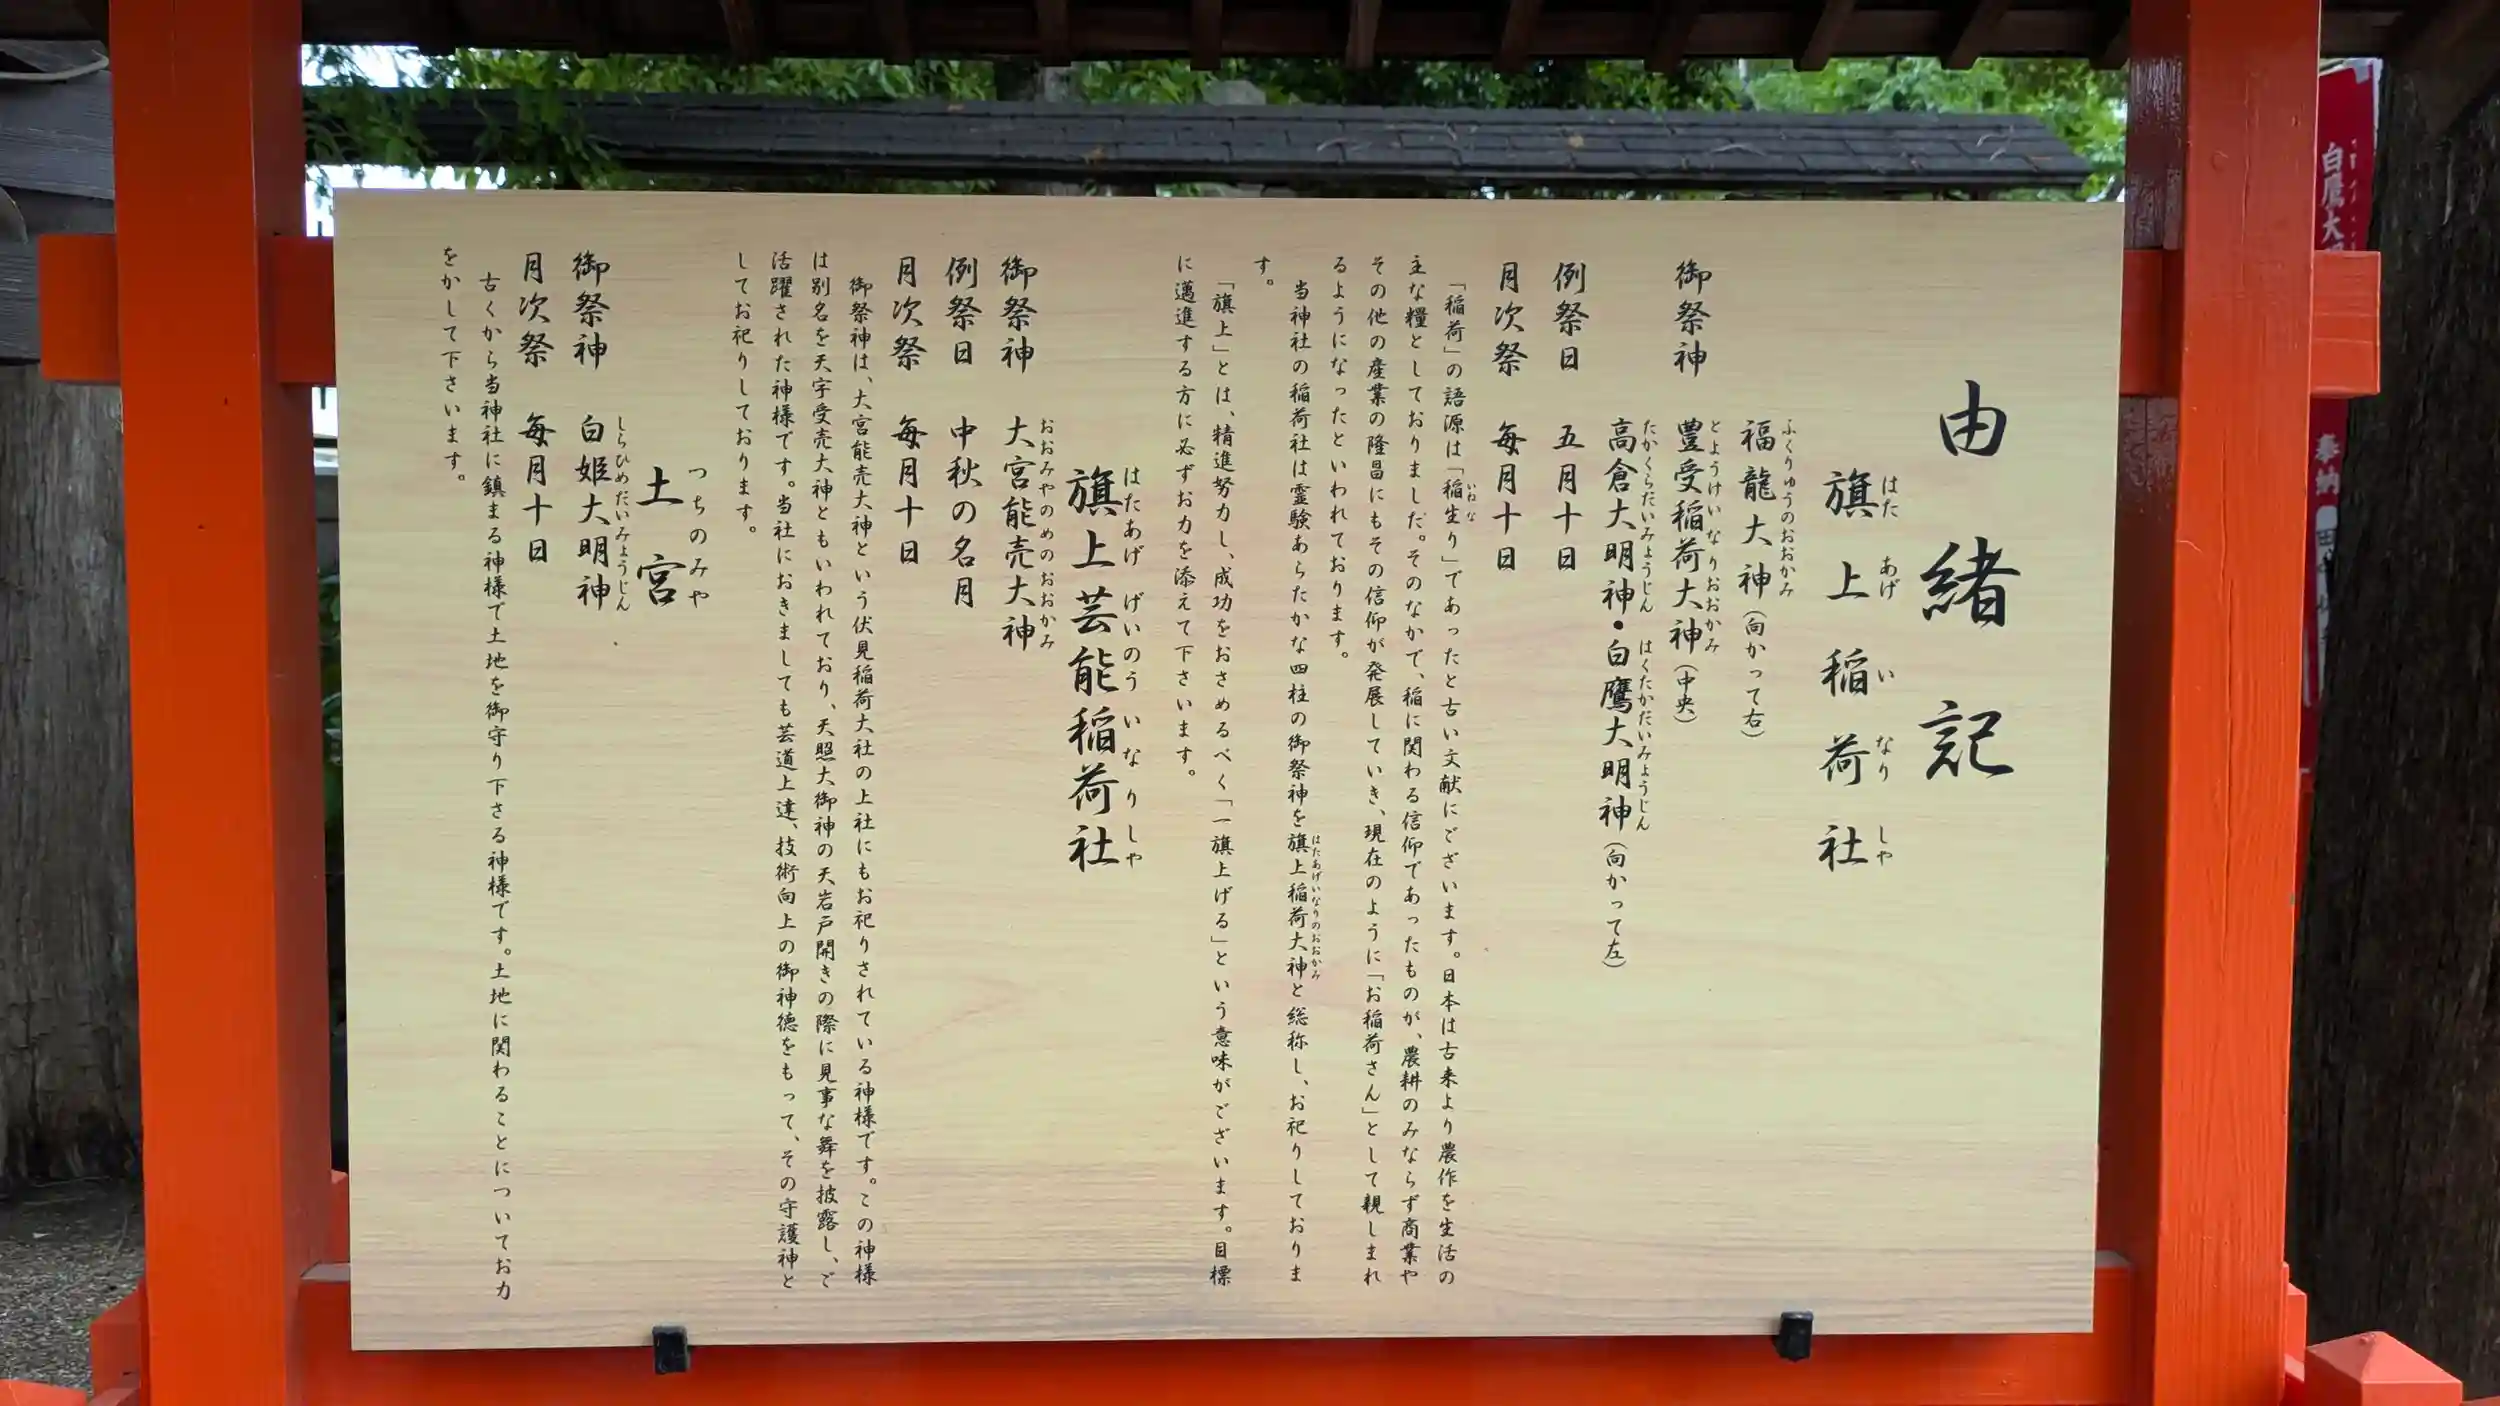 由緒記
旗上稲荷社
はたあげいなりしや
御祭神
福龍大神(向かって右)
ふくりゅうのおおかみ
豊受稲荷大神(中央)
とようけいなりおおかみ
高倉大明神・白鷹大明神(向かって左)
たかくらだいみようじん はくたかだいみようじん
例祭日 五月十日
月次祭 毎月十日
「稲荷」の語源は「稲生り」であったと古い文献にございます。日本は古来より農作を生活の
いねな
主な糧としておりました。そのなかで、稲に関わる信仰であったものが、農耕のみならず商業や
その他の産業の隆昌にもその信仰が発展していき、現在のように「お稲荷さん」として親しまれ
るようになったといわれております。
当神社の稲荷社は霊験あらたかな四柱の御祭神を旗上稲荷大神と総称し、お祀りしておりま
はたあげいなりのおおかみ
す。
「旗上」とは、精進努力し、成功をおさめるべく「一旗上げる」という意味がございます。目標
に邁進する方に必ずお力を添えて下さいます。
旗上芸能稲荷社
はたあげげいのういなりしや
御祭神 大宮能売大神
おおみやのめのおおかみ
例祭日 中秋の名月
月次祭 毎月十日
御祭神は、大宮能売大神という伏見稲荷大社の上社にもお祀りされている神様です。この神様
は別名を天宇受売大神ともいわれており、天照大御神の天岩戸開きの際に見事な舞を披露し、ご
活躍された神様です。当社におきましても芸道上達、技術向上の御神徳をもって、その守護神と
してお祀りしております。
土宮
つちのみや
御祭神 白姫大明神
しらひめだいみようじん
月次祭 毎月十日
古くから当神社に鎮まる神様で土地を御守り下さる神様です。土地に関わることについてお力
をかして下さいます。
白鷹大
奉納